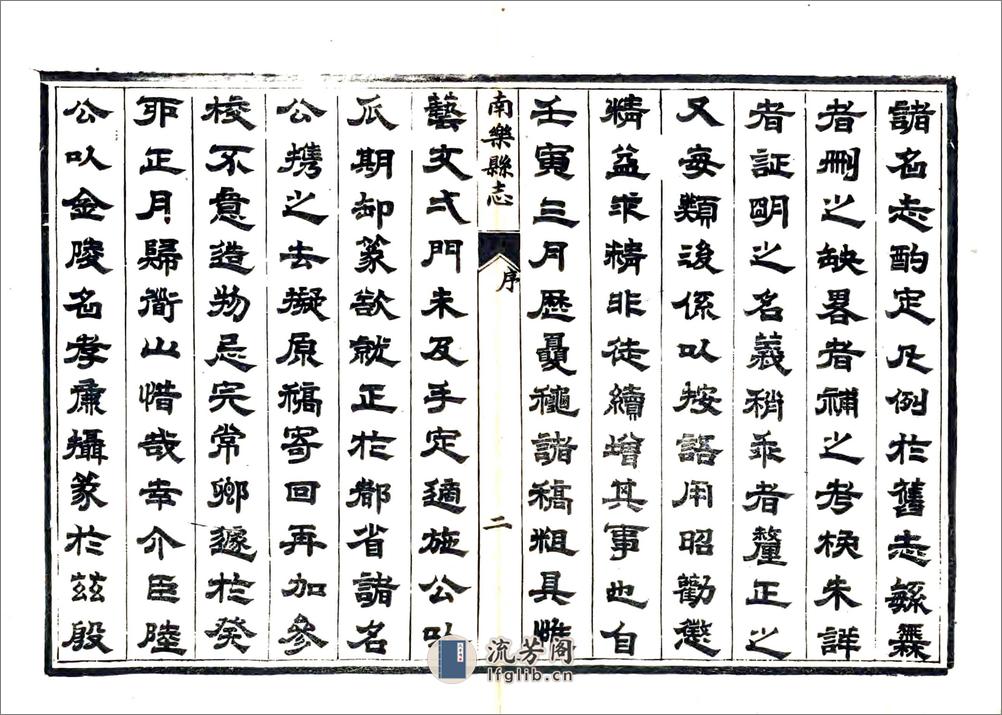 諸名志酌定凡例於舊志緐蕪
者刪之缺畧者補之考核未詳
者証明之名義稍乖者釐正之
又每類後係以按語用昭勸懲
精益求精非徒續增其事也自
壬寅三月歷夓穐諸稿粗具惟
南樂縣志
序
二
藝文弌門未及手定適施公以
瓜期卸篆欲就正於都省諸名
公携之去擬原稿寄回再加參
校不意造物忌完常卿遽於癸
卯正月歸衜山惜哉幸介臣陸
公以金陵名孝廉攝篆於茲殷
流芳阁
lfglib.cn